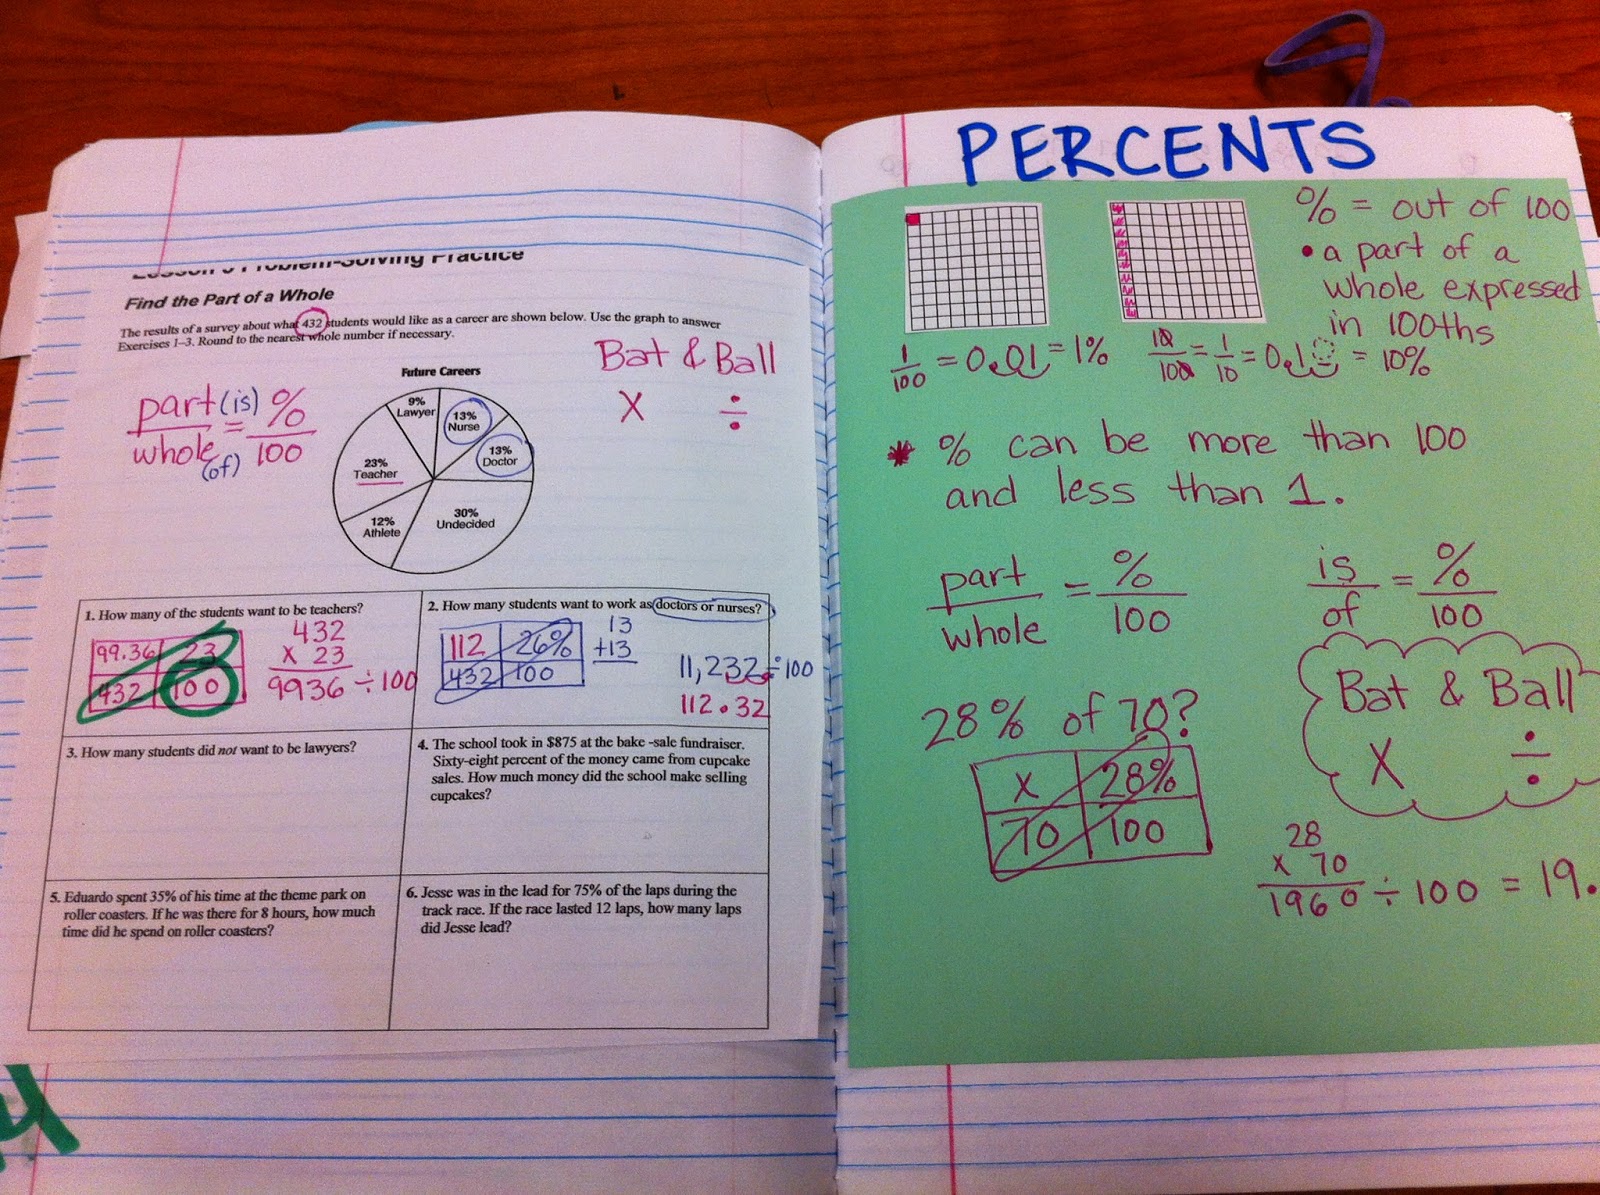 Problem-Solving Practice
Find the Part of a Whole
The results of a survey about what 432 students would like as a career are shown below. Use the graph to answer
Exercises 1–3. Round to the nearest whole number if necessary.
Bat & Ball
X ÷
part (is) = %
whole (of) 100
Future Careers
9%
Lawyer
13%
Nurse
13%
Doctor
23%
Teacher
12%
Athlete
30%
Undecided
1. How many of the students want to be teachers?
99.36 23
432 100
432
X 23
9936 ÷ 100
2. How many students want to work as doctors or nurses?
112 26%
432 100
13
+13
11,232 ÷ 100
112.32
3. How many students did not want to be lawyers?
4. The school took in $875 at the bake -sale fundraiser.
Sixty-eight percent of the money came from cupcake
sales. How much money did the school make selling
cupcakes?
5. Eduardo spent 35% of his time at the theme park on
roller coasters. If he was there for 8 hours, how much
time did he spend on roller coasters?
6. Jesse was in the lead for 75% of the laps during the
track race. If the race lasted 12 laps, how many laps
did Jesse lead?
PERCENTS
% = out of 100
• a part of a
whole expressed
in 100ths
1/100 = 0.01 = 1%
10/100 = 1/10 = 0.1 = 10%
* % can be more than 100
and less than 1.
part = %
whole 100
is = %
of 100
Bat & Ball
X ÷
28% of 70?
X 28%
70 100
28
X 70
1960 ÷ 100 = 19.